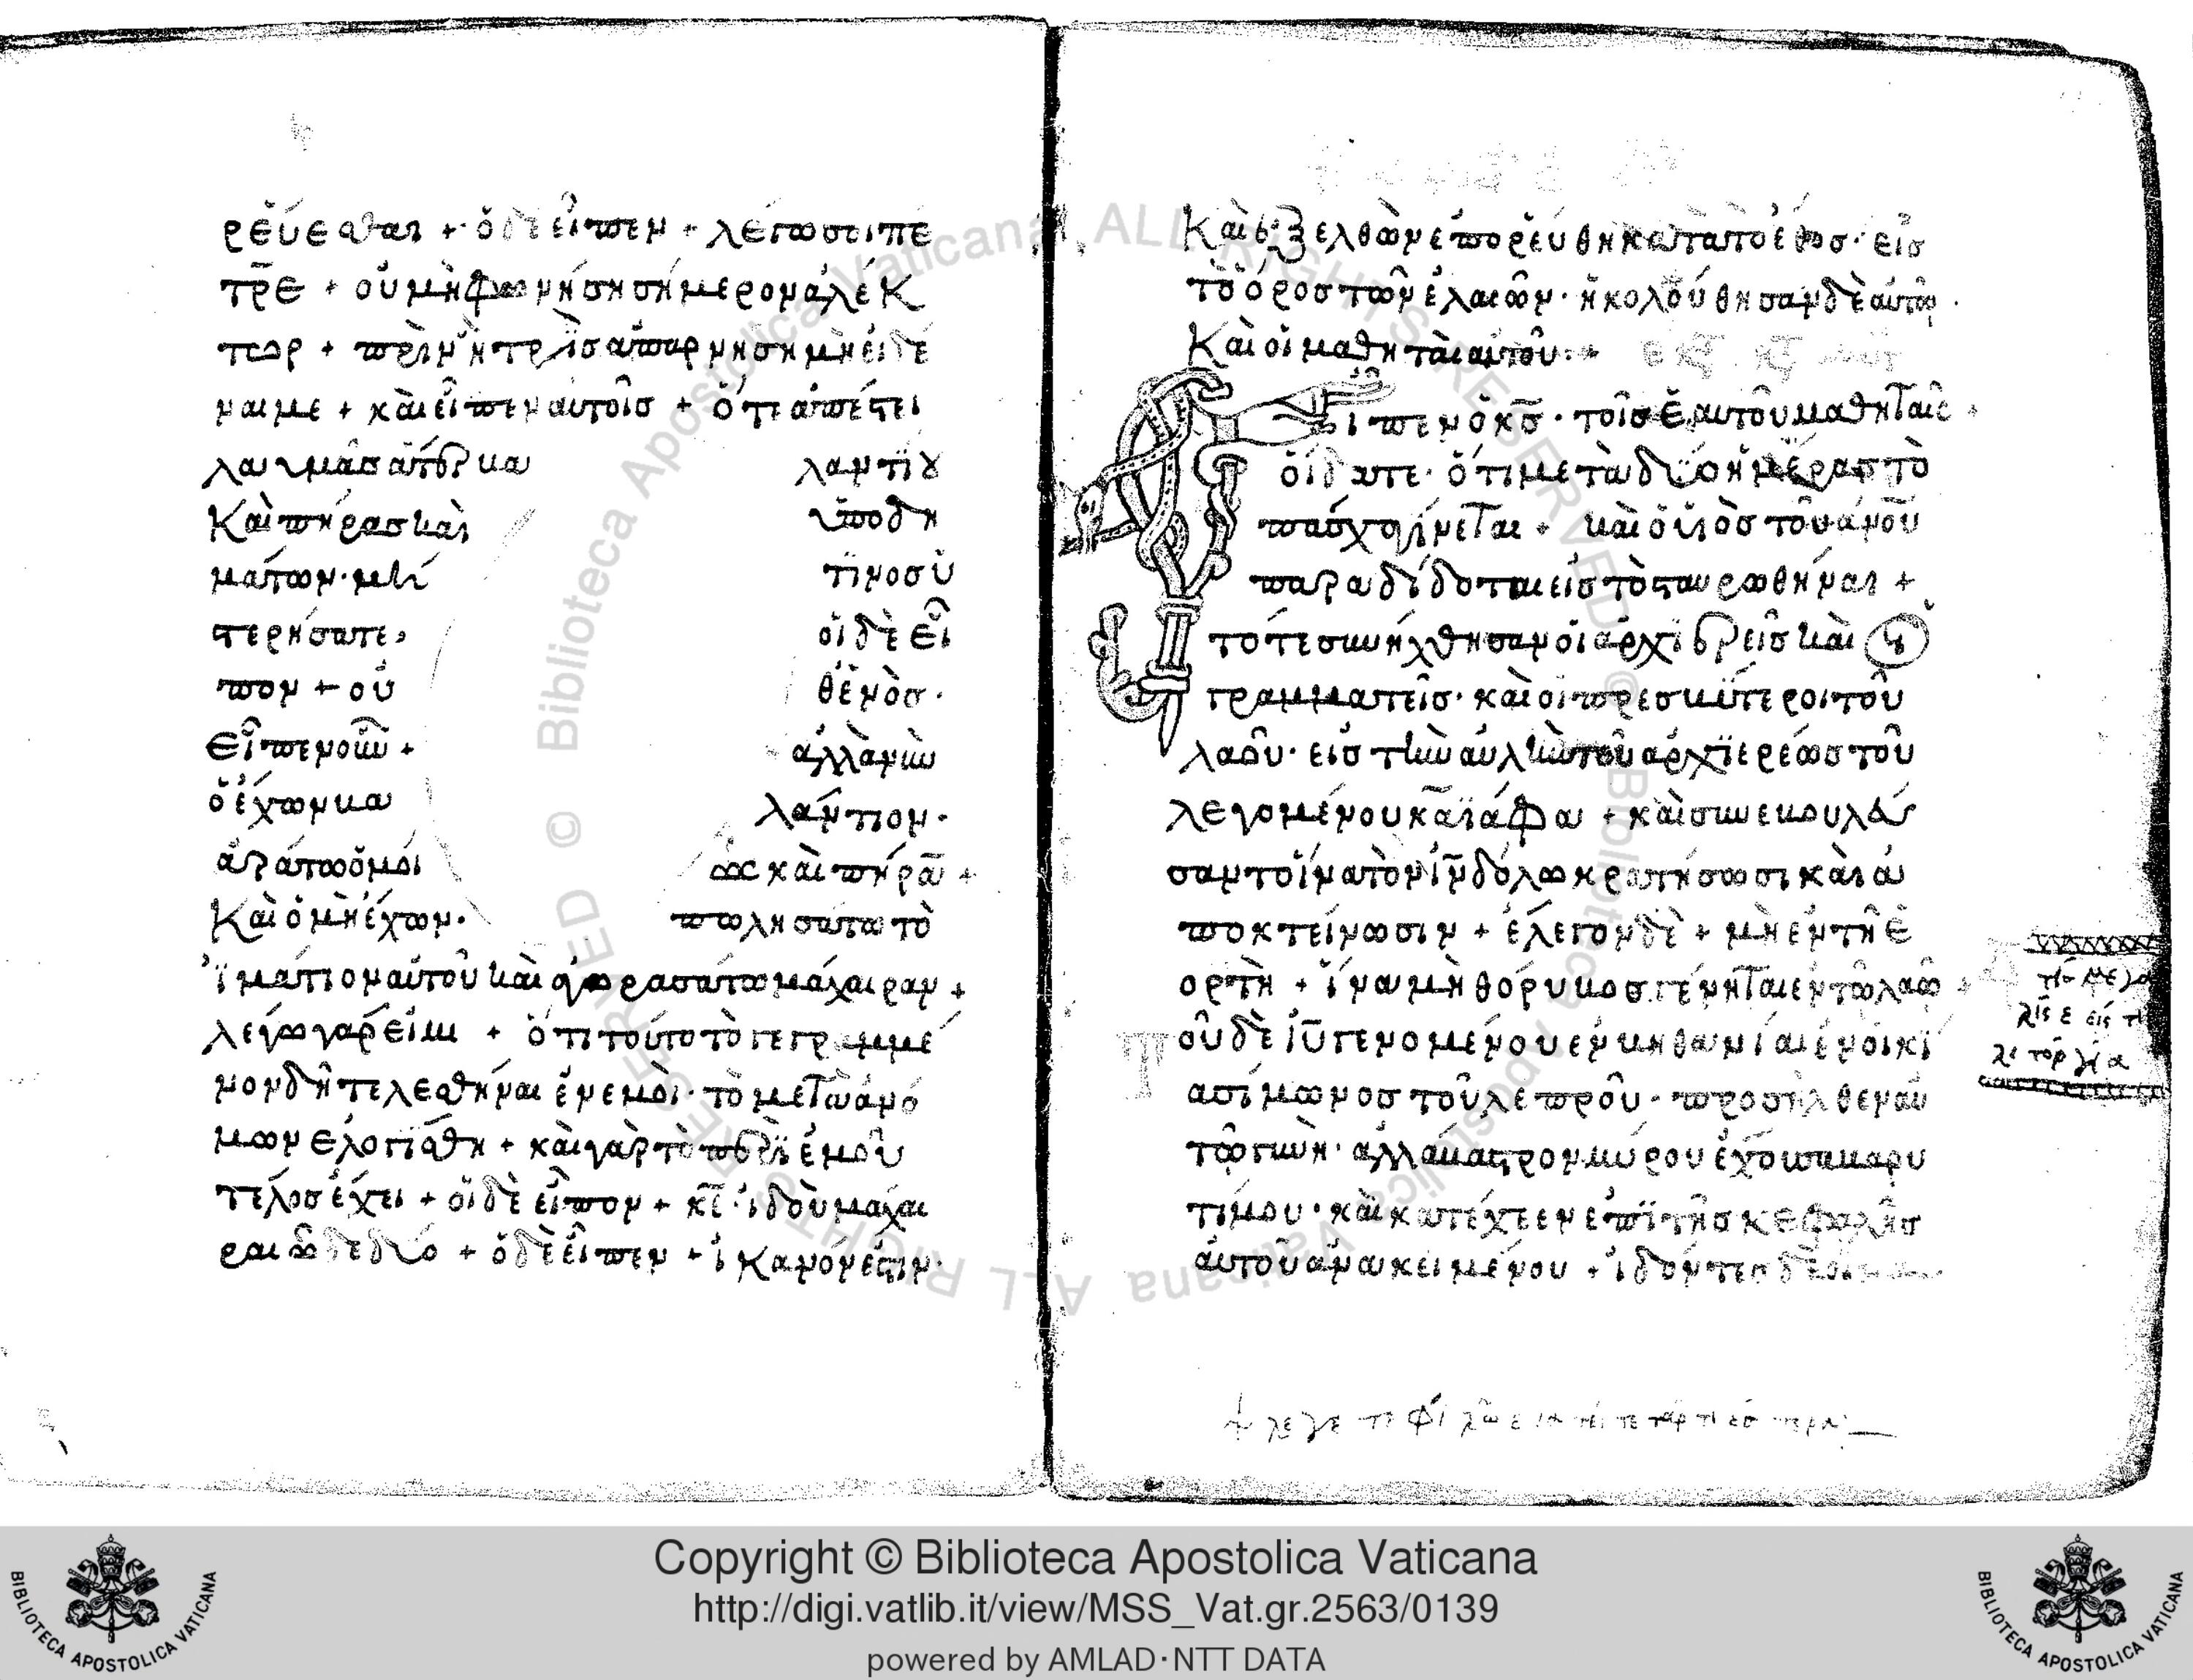 ρεύεσθαι + ὁ δὲ εἶπεν + λέγω σοι πέ
τρε + οὐ μὴ φωνήση σήμερον ἀλέκ
τωρ + πρὶν ἢ τρὶς ἀπαρνήση μὴ εἰδέ
ναι με + καὶ εἶπεν αὐτοῖς + ὅτι ἀπέστει
λα ὑμᾶς ἄτερ βα λαντίου
καὶ πήρας καὶ ὑποδη
μάτων· μή τινος ὑ
στερήσατε, οἱ δὲ εἶ
πον + οὐ θενός.
εἶπεν οὖν + ἀλλὰ νῦν
ὁ ἔχων βα λάντιον.
ἀράτω ὁμοί ως καὶ πήραν +
καὶ ὁ μὴ ἔχων. πωλησάτω τὸ
ἱμάτιον αὐτοῦ καὶ ἀγορασάτω μάχαιραν +
λέγω γὰρ ὑμῖν + ὅτι τοῦτο τὸ γεγραμμέ
νον δεῖ τελεσθῆναι ἐν ἐμοί· τὸ μετὰ ἀνό
μων ἐλογίσθη + καὶ γὰρ τὸ περὶ ἐμοῦ
τέλος ἔχει + οἱ δὲ εἶπον + κε̅· ἰδοὺ μάχαι
ραι ὧδε δύο + ὁ δὲ εἶπεν + ἱκανόν ἐστιν·
Καὶ ἐξελθὼν ἐπορεύθη κατὰ τὸ ἔθος· εἰς
τὸ ὄρος τῶν ἐλαιῶν· ἠκολούθησαν δὲ αὐτῷ
Καὶ οἱ μαθηταὶ αὐτοῦ +
Εἶπεν ὁ κς̅· τοῖς ἑαυτοῦ μαθηταῖς
οἴδατε· ὅτι μετὰ δύο ἡμέρας τὸ
πάσχα γίνεται + καὶ ὁ υἱὸς τοῦ ἀνου̅
παραδίδοται εἰς τὸ σταυρωθῆναι +
τότε συνήχθησαν οἱ ἀρχιερεῖς καὶ οἱ
γραμματεῖς· καὶ οἱ πρεσβύτεροι τοῦ
λαοῦ· εἰς τὴν αὐλὴν τοῦ ἀρχιερέως τοῦ
λεγομένου καϊάφα + καὶ συνεβουλεύ
σαντο ἵνα τὸν ἰν̅ δόλω κρατήσωσι καὶ ἀ
ποκτείνωσιν + ἔλεγον δὲ + μὴ ἐν τῆ ἑ
ορτῆ + ἵνα μὴ θόρυβος γένηται ἐν τῶ λαῶ +
τοῦ δὲ ιυ̅ γενομένου ἐν βηθανία ἐν οἰκί
α σίμωνος τοῦ λεπροῦ· προσῆλθεν αὐ
τῶ γυνὴ· ἀλάβαστρον μύρου ἔχουσα βαρυ
τίμου· καὶ κατέχεεν ἐπὶ τῆς κεφαλῆς
αὐτοῦ ἀνακειμένου + ἰδόντες δὲ οἱ
Copyright © Biblioteca Apostolica Vaticana
http://digi.vatlib.it/view/MSS_Vat.gr.2563/0139
powered by AMLAD·NTT DATA